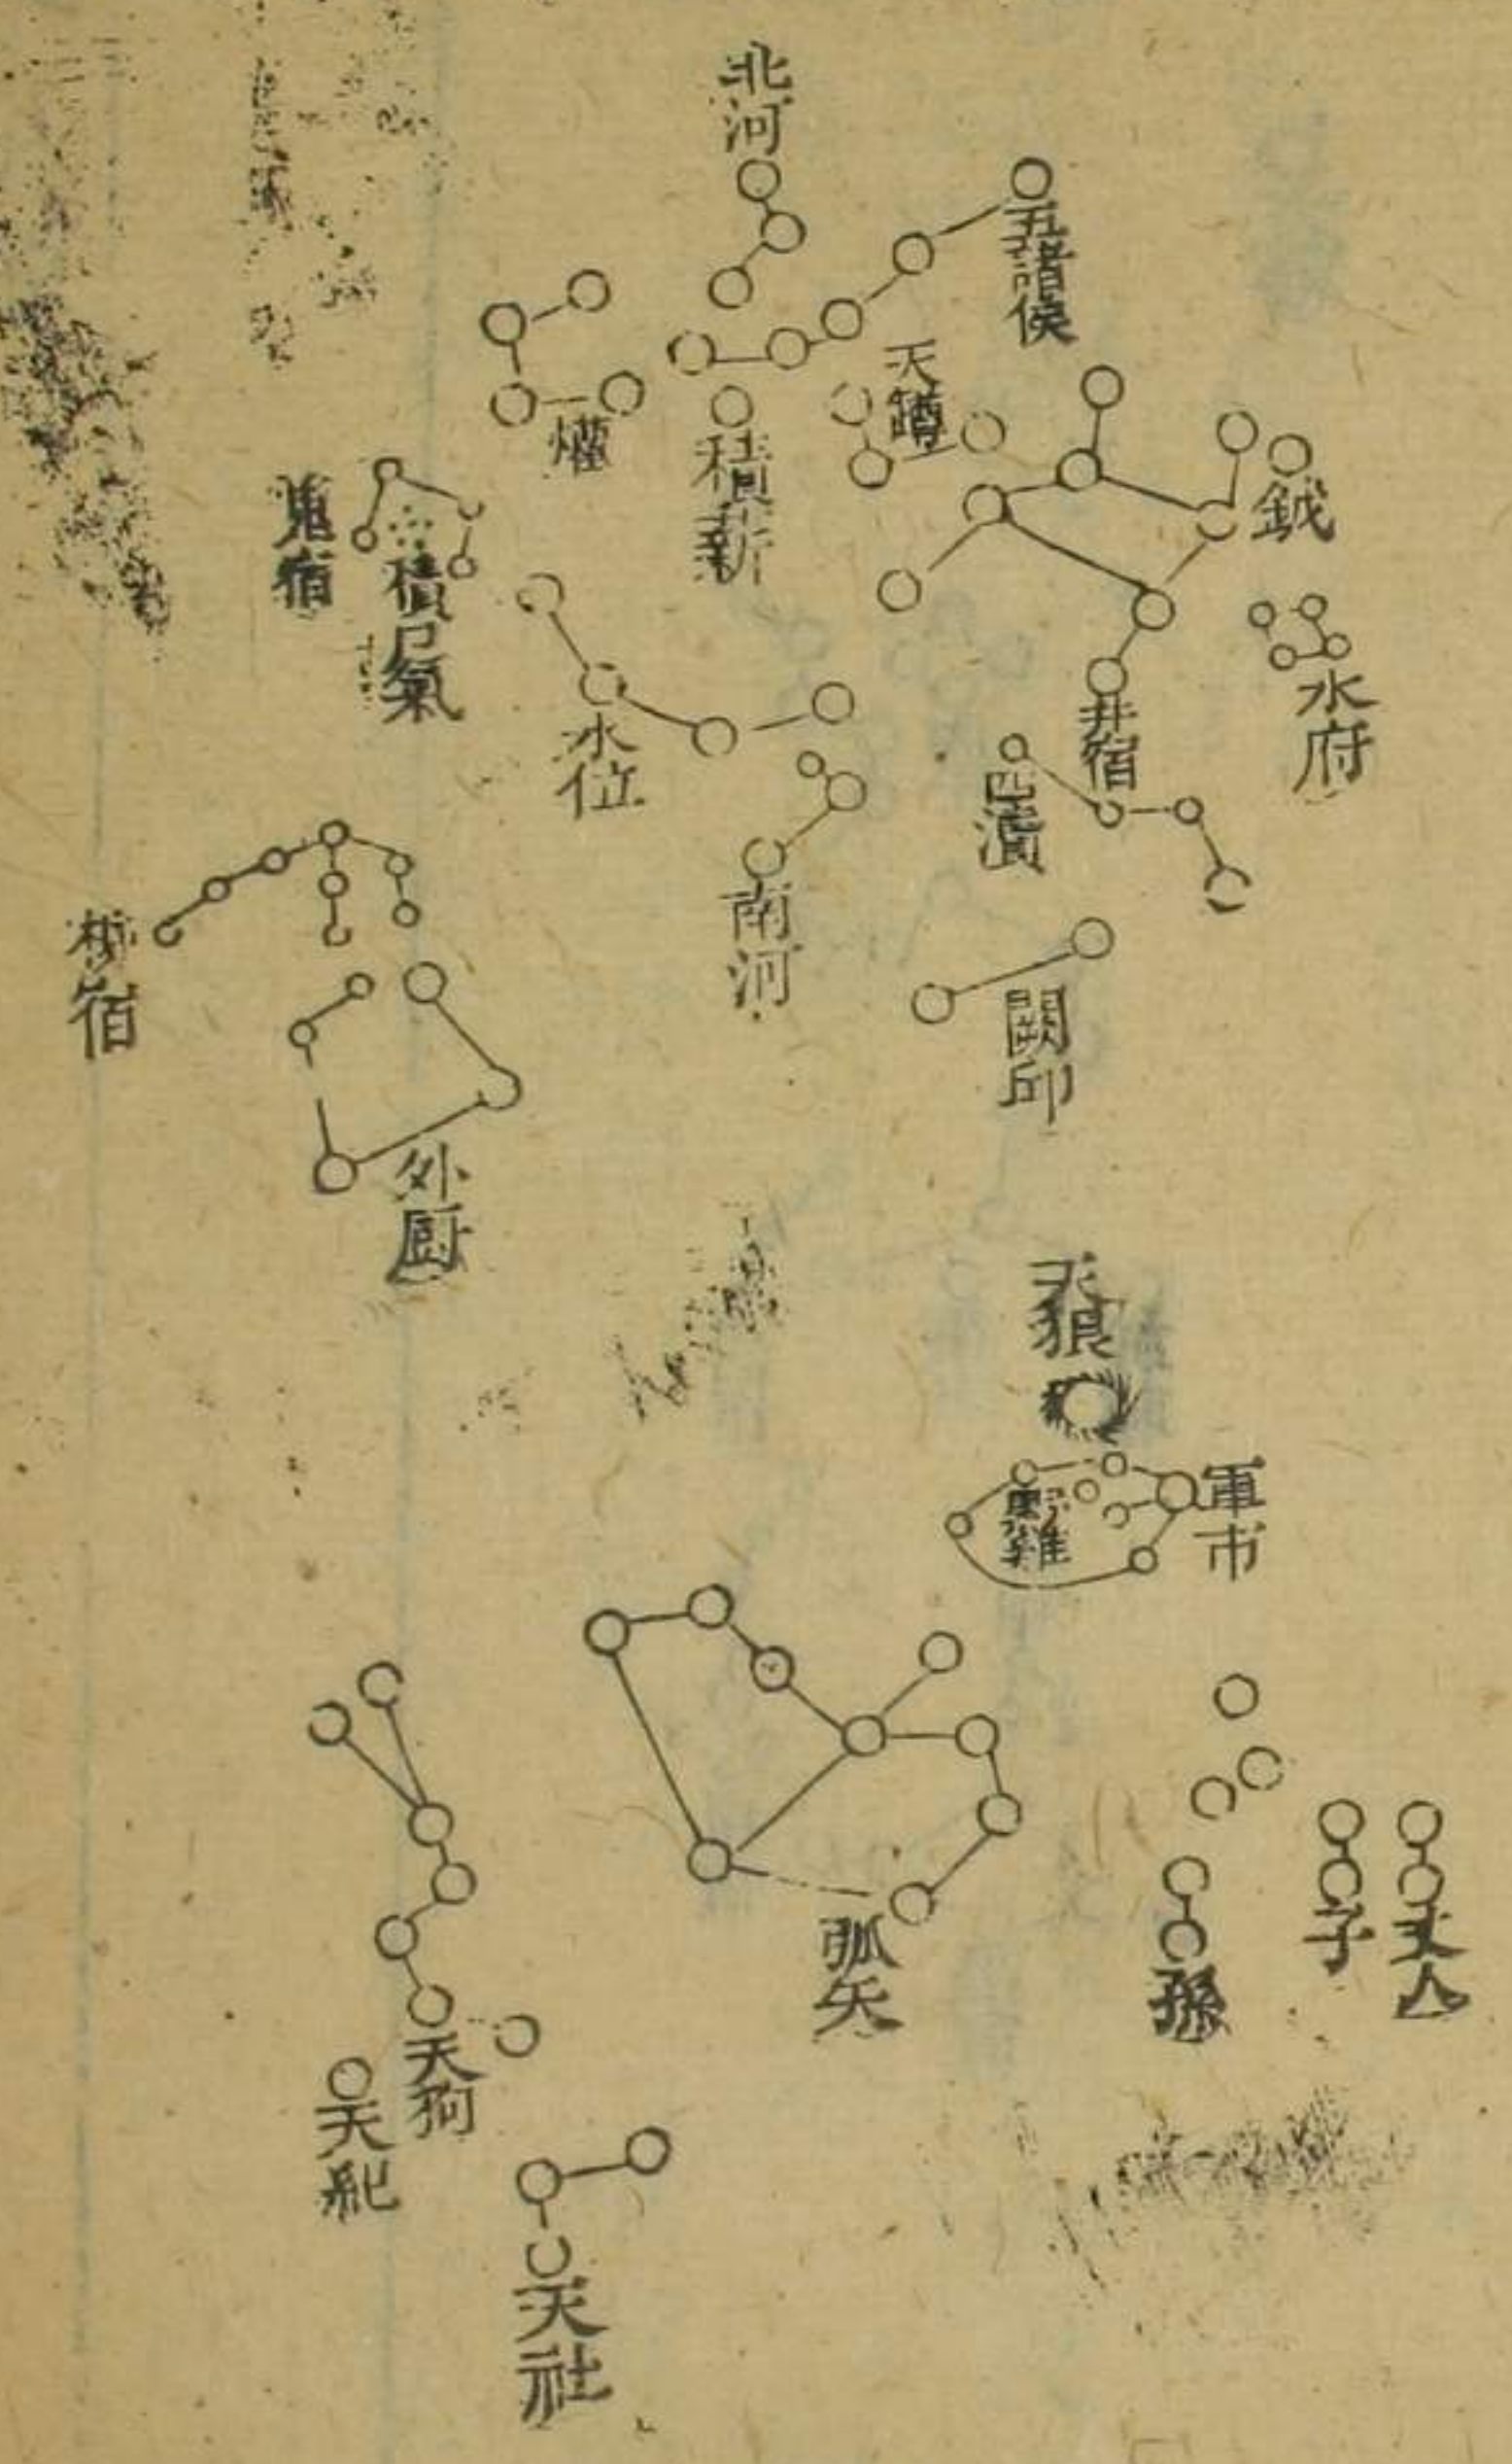 北河
五諸侯
天罇
爟
積薪
鉞
鬼宿
積尸氣
水府
井宿
水位
四瀆
南河
柳宿
闕邱
外厨
天狼
軍市
野雞
弧矢
孫
子
丈人
天狗
天紀
天社